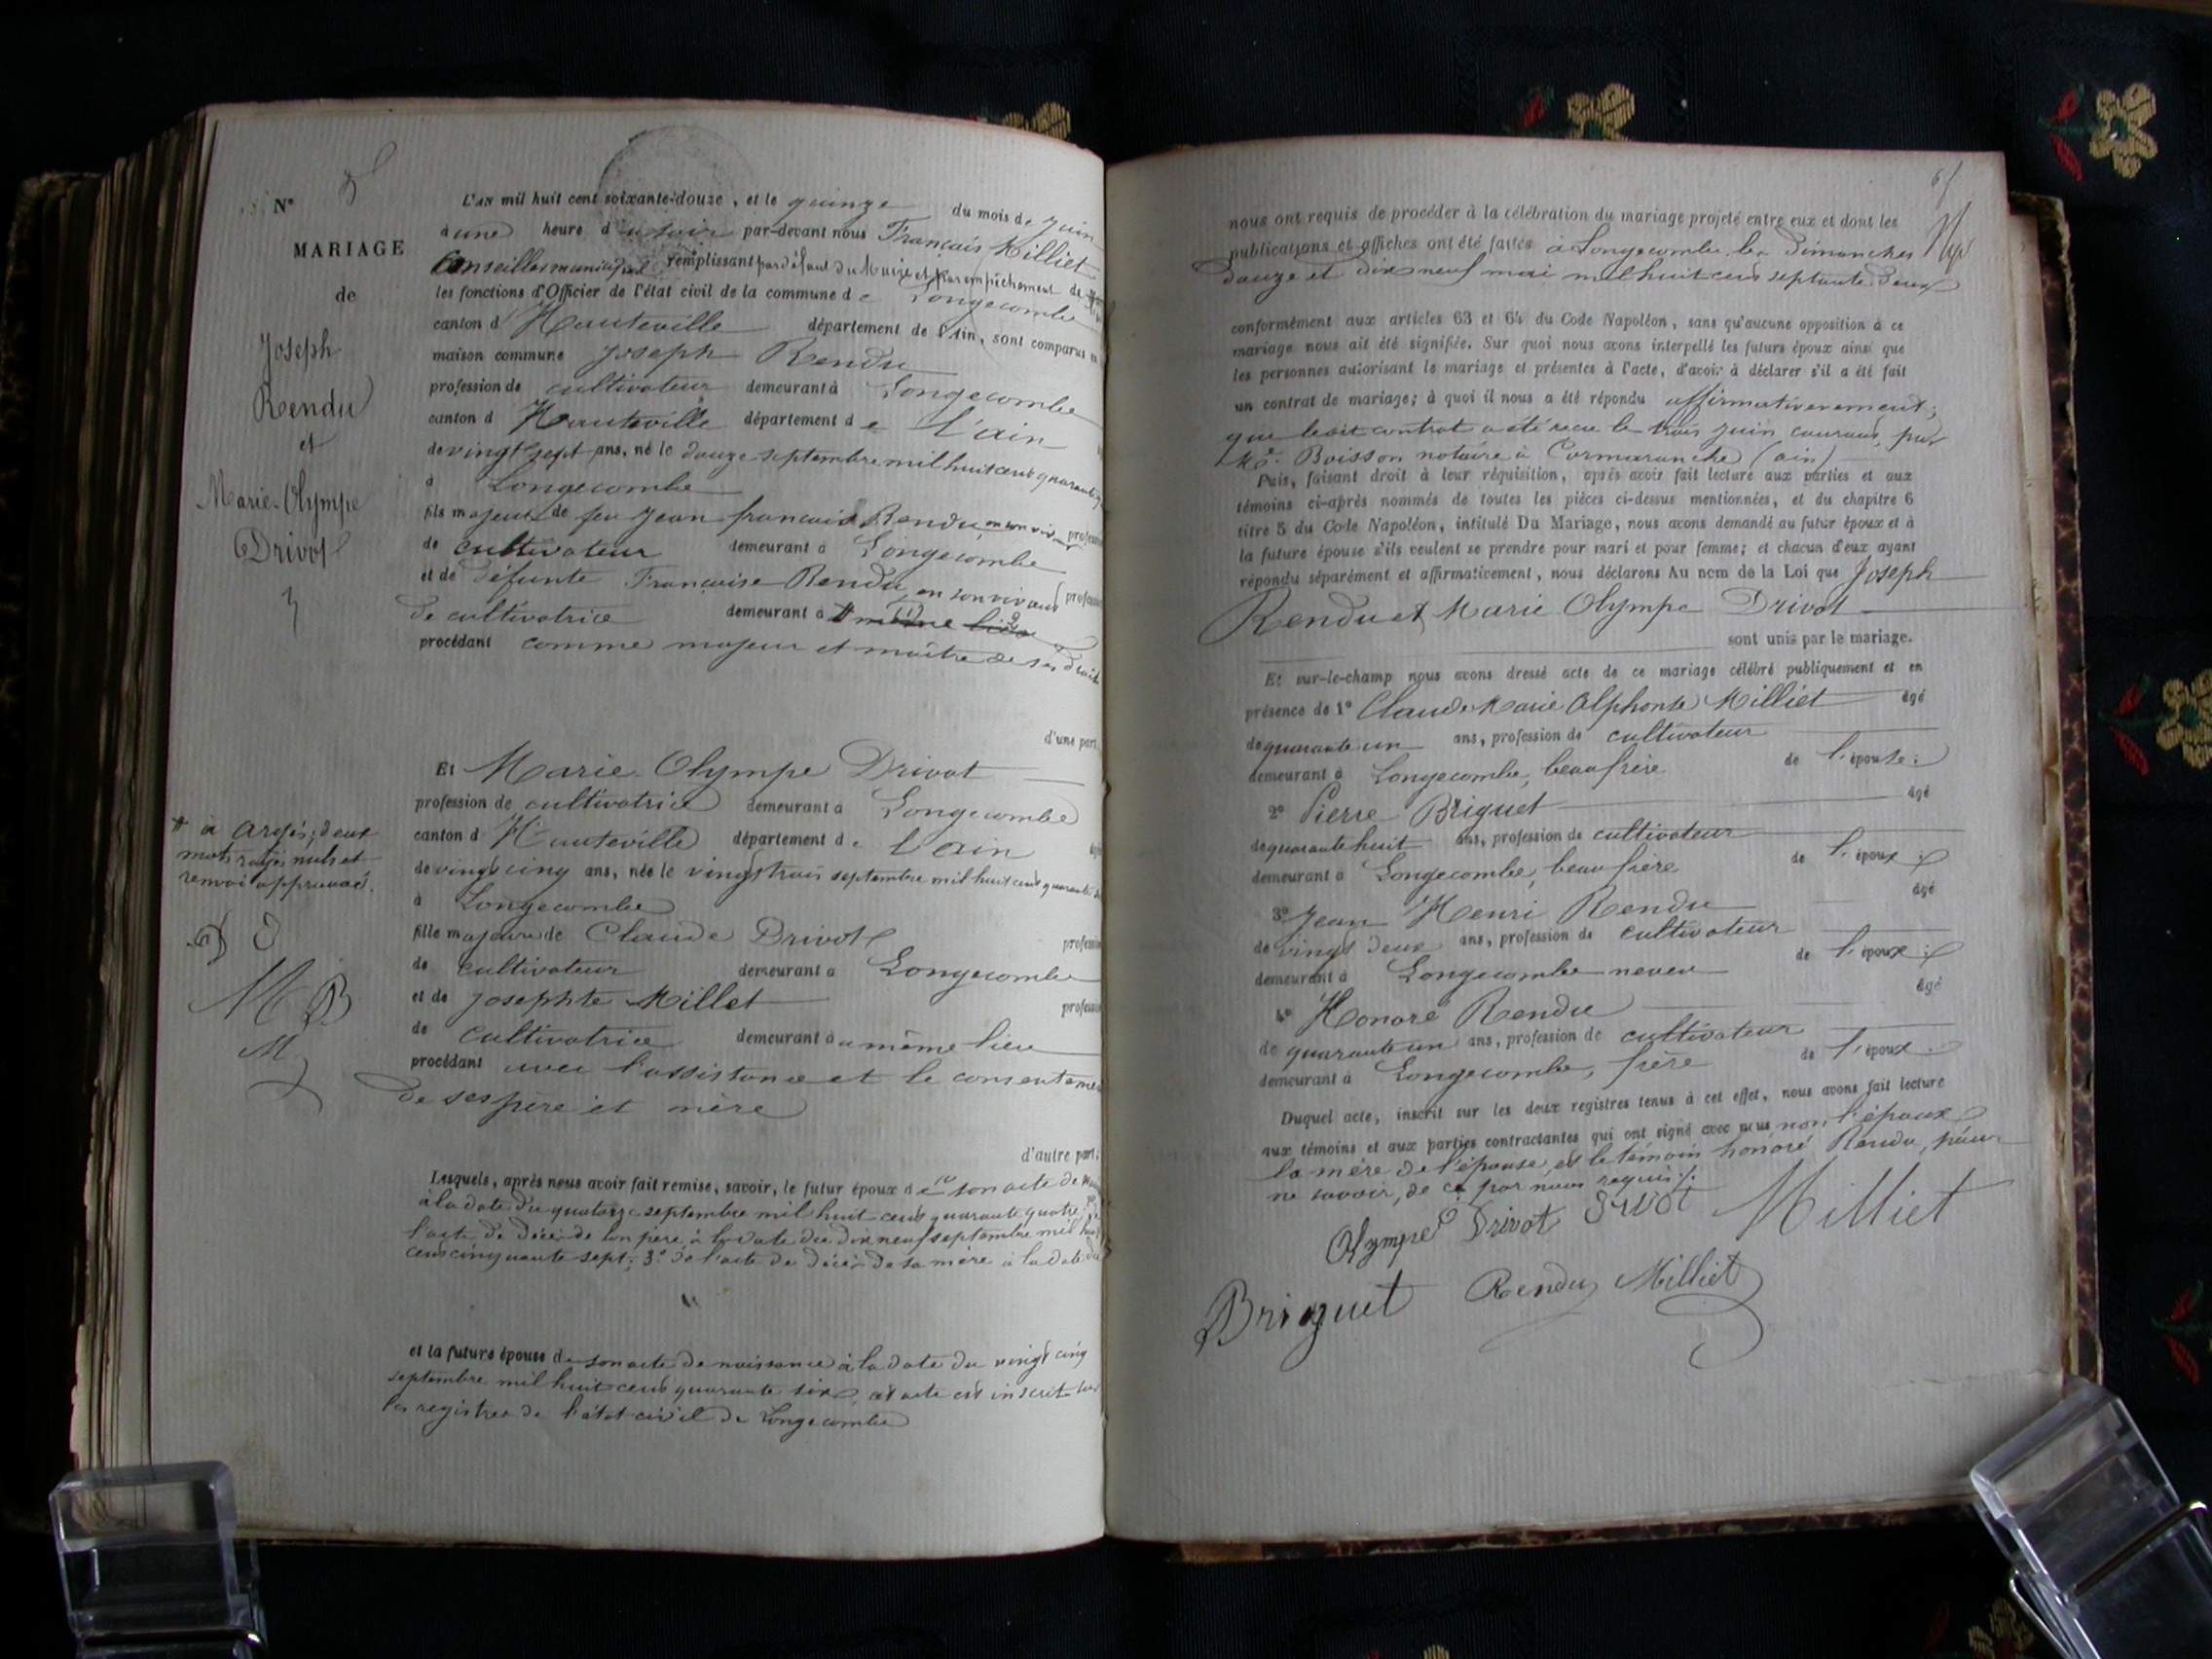 Nº 5
MARIAGE
de
Joseph
Rendu
et
Marie-Olympe
Drivot
L'AN mil huit cent soixante-douze, et le quinze du mois de Juin
à une heure du soir par-devant nous François Milliet
Conseiller municipal remplissant par défaut du Maire et par empêchement de
les fonctions d'Officier de l'état civil de la commune de Longecombe
canton d'Hauteville département de l'Ain, sont comparus en
maison commune Joseph Rendu
profession de cultivateur demeurant à Longecombe
canton d'Hauteville département de l'ain
de vingt sept ans, né le douze septembre mil huit cent quarante
à Longecombe
fils majeur de feu Jean françois Rendu, en son viv
de cultivateur demeurant à Longecombe
et de défunte Françoise Rendu, en son vivant
de cultivatrice demeurant à # même lieu
procédant comme majeur et maître de ses droits
d'une part,
Et Marie-Olympe Drivot
profession de cultivatrice demeurant à Longecombe
canton d'Hauteville département de l'ain
de vingt cinq ans, née le vingt trois septembre mil huit cent quarante
à Longecombe
fille majeure de Claude Drivot
de cultivateur demeurant à Longecombe
et de Josephte Millet
de cultivatrice demeurant au même lieu
procédant avec l'assistance et le consentement
de ses père et mère
d'autre part;
# à Argis; deux
mots rayés nuls et
renvoi approuvés.
M B
M
Lesquels, après nous avoir fait remise, savoir, le futur époux de son acte de
à la date du quatorze septembre mil huit cent quarante quatre;
l'acte de décès de son père, à la date du dix neuf septembre mil huit
cent cinquante sept; 3º de l'acte de décès de sa mère à la date du
et la future épouse de son acte de naissance à la date du vingt cinq
septembre mil huit cent quarante six, cet acte est inscrit sur
les registres de l'état civil de Longecombe
nous ont requis de procéder à la célébration du mariage projeté entre eux et dont les
publications et affiches ont été faites à Longecombe les dimanches
douze et dix neuf mai mil huit cent septante deux
conformément aux articles 63 et 64 du Code Napoléon, sans qu'aucune opposition à ce
mariage nous ait été signifiée. Sur quoi nous avons interpellé les futurs époux ainsi que
les personnes autorisant le mariage et présentes à l'acte, d'avoir à déclarer s'il a été fait
un contrat de mariage; à quoi il nous a été répondu affirmativement;
que ledit contrat a été reçu le trois Juin courant, par
Me. Boisson notaire à Cormaranche (ain)
Puis, faisant droit à leur réquisition, après avoir fait lecture aux parties et aux
témoins ci-après nommés de toutes les pièces ci-dessus mentionnées, et du chapitre 6
titre 5 du Code Napoléon, intitulé Du Mariage, nous avons demandé au futur époux et à
la future épouse s'ils veulent se prendre pour mari et pour femme; et chacun d'eux ayant
répondu séparément et affirmativement, nous déclarons Au nom de la Loi que Joseph
Rendu et Marie Olympe Drivot
sont unis par le mariage.
Et sur-le-champ nous avons dressé acte de ce mariage célébré publiquement et en
présence de 1º Claude Marie Alphonse Milliet âgé
de quarante un ans, profession de cultivateur
demeurant à Longecombe, beau frère de l'épouse;
2º Pierre Briguet âgé
de quarante huit ans, profession de cultivateur
demeurant à Longecombe, beau frère de l'époux;
âgé
3º Jean Henri Rendu
de vingt deux ans, profession de cultivateur
demeurant à Longecombe neveu de l'époux;
âgé
4º Honoré Rendu
de quarante un ans, profession de cultivateur
demeurant à Longecombe, frère de l'époux.
Duquel acte, inscrit sur les deux registres tenus à cet effet, nous avons fait lecture
aux témoins et aux parties contractantes qui ont signé avec nous non l'époux
la mère de l'épouse, et le témoin honoré Rendu, pour
ne savoir, de ce par nous requis.
Olympe Drivot Drivot Milliet
Briguet Rendu Milliet